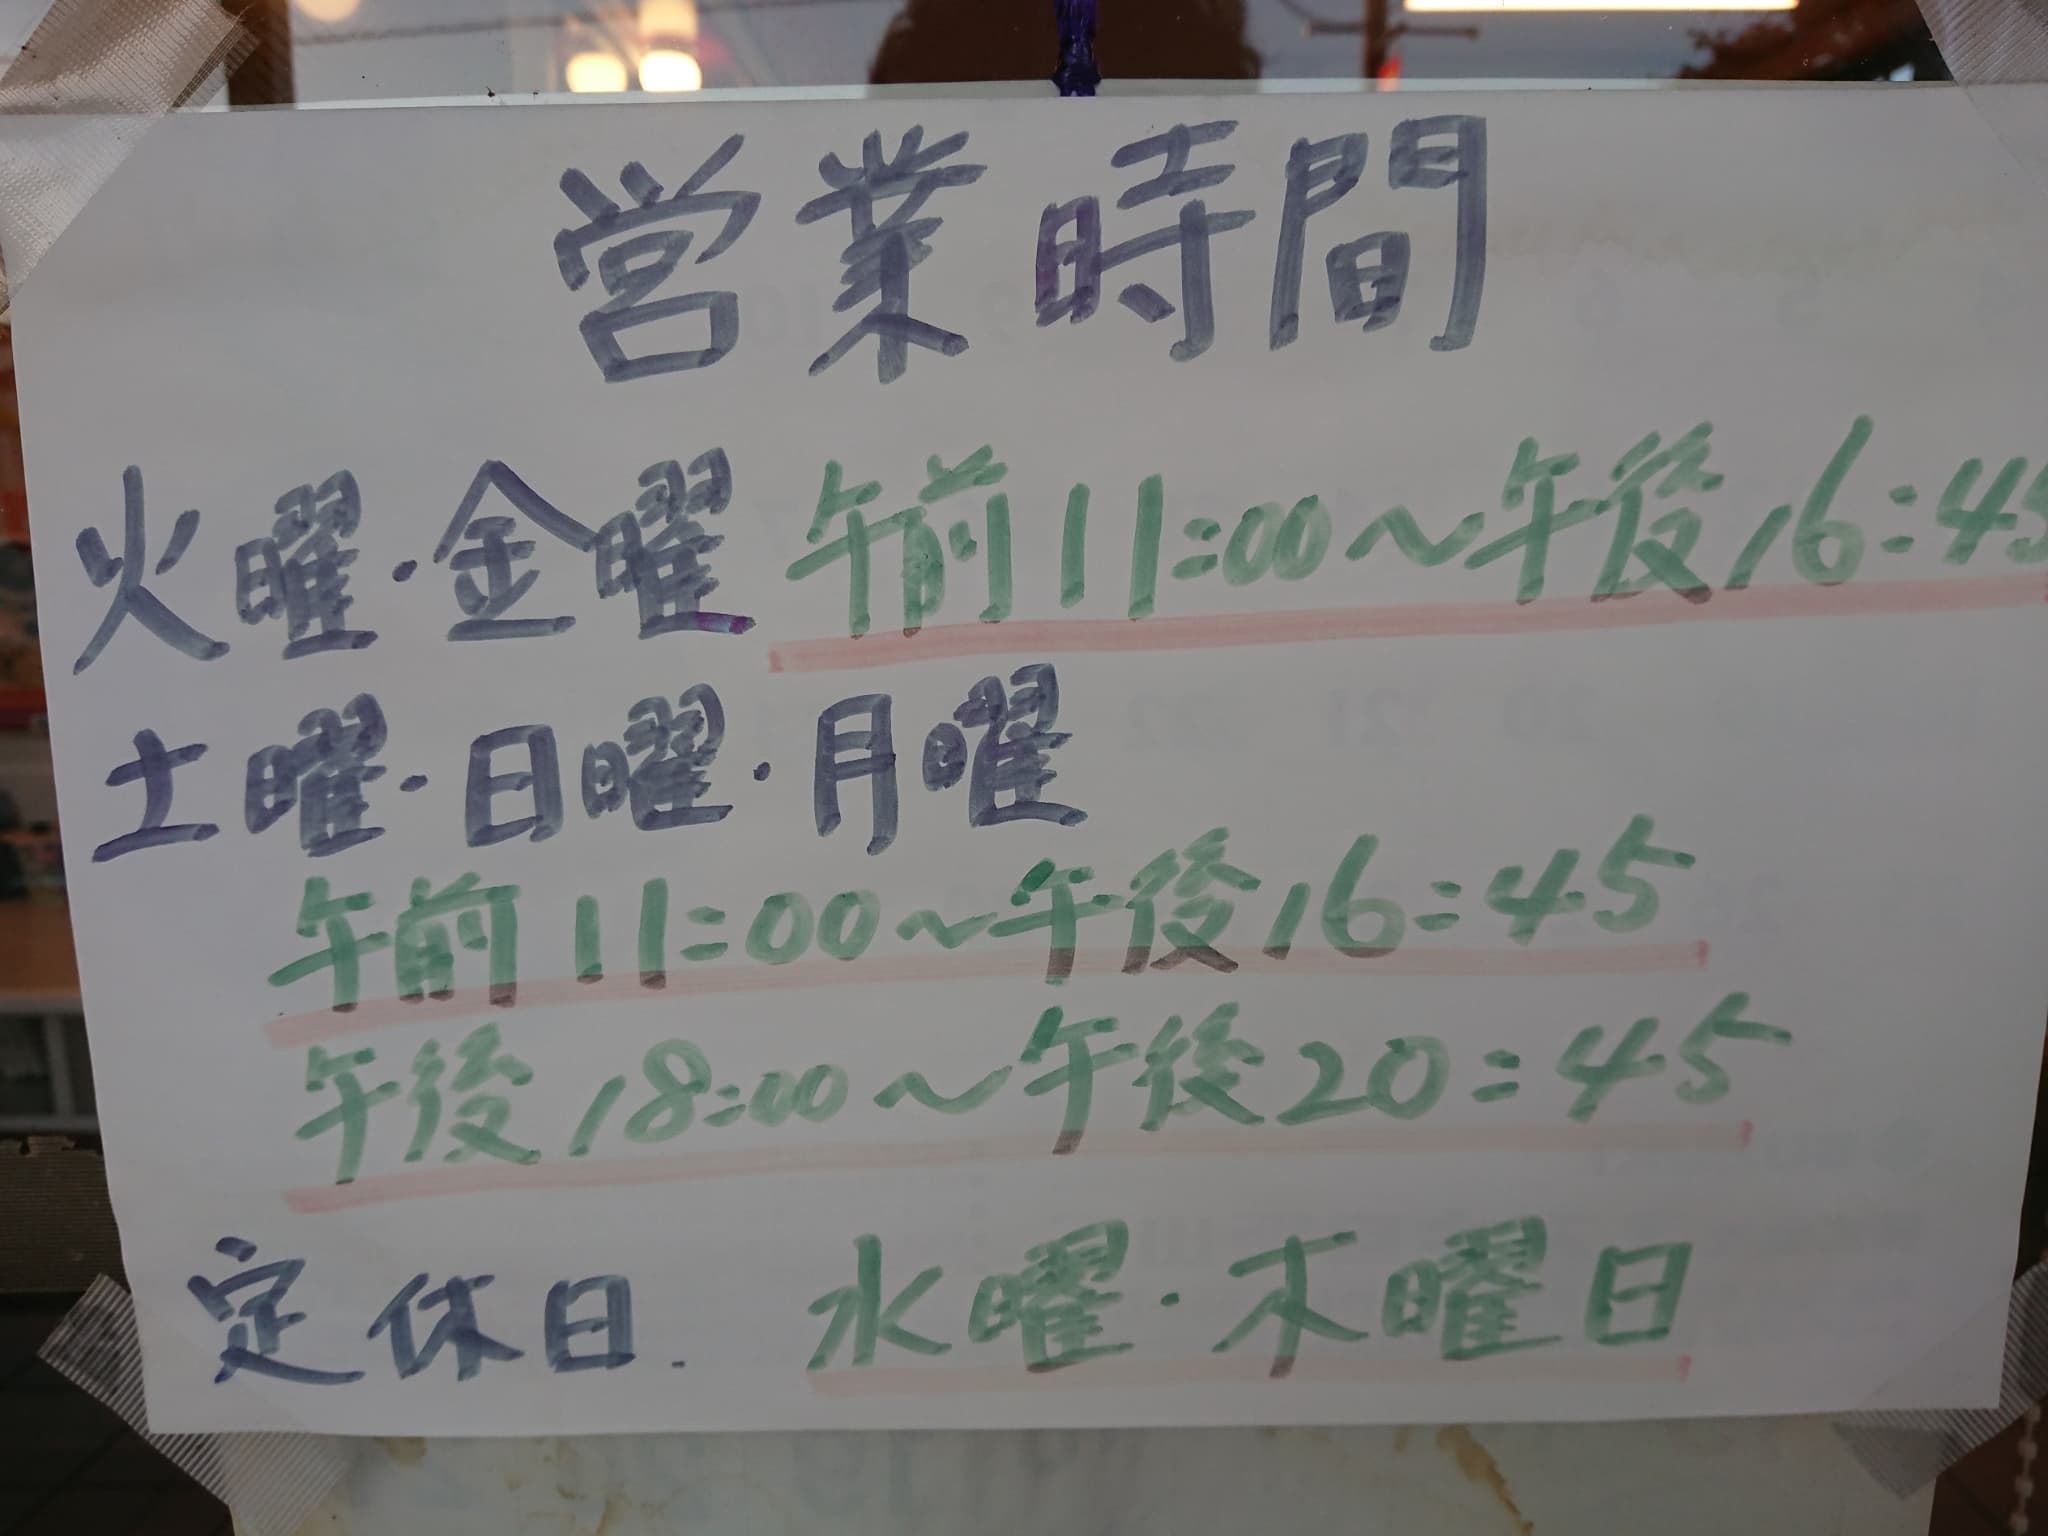 営業時間
火曜・金曜 午前11:00～午後16:45
土曜・日曜・月曜
午前11:00～午後16:45
午後18:00～午後20:45
定休日. 水曜・木曜日